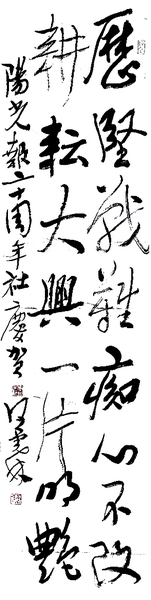 歷堅戰難痴心不改
耕耘大興一片明艷
陽光報二十周年社慶賀